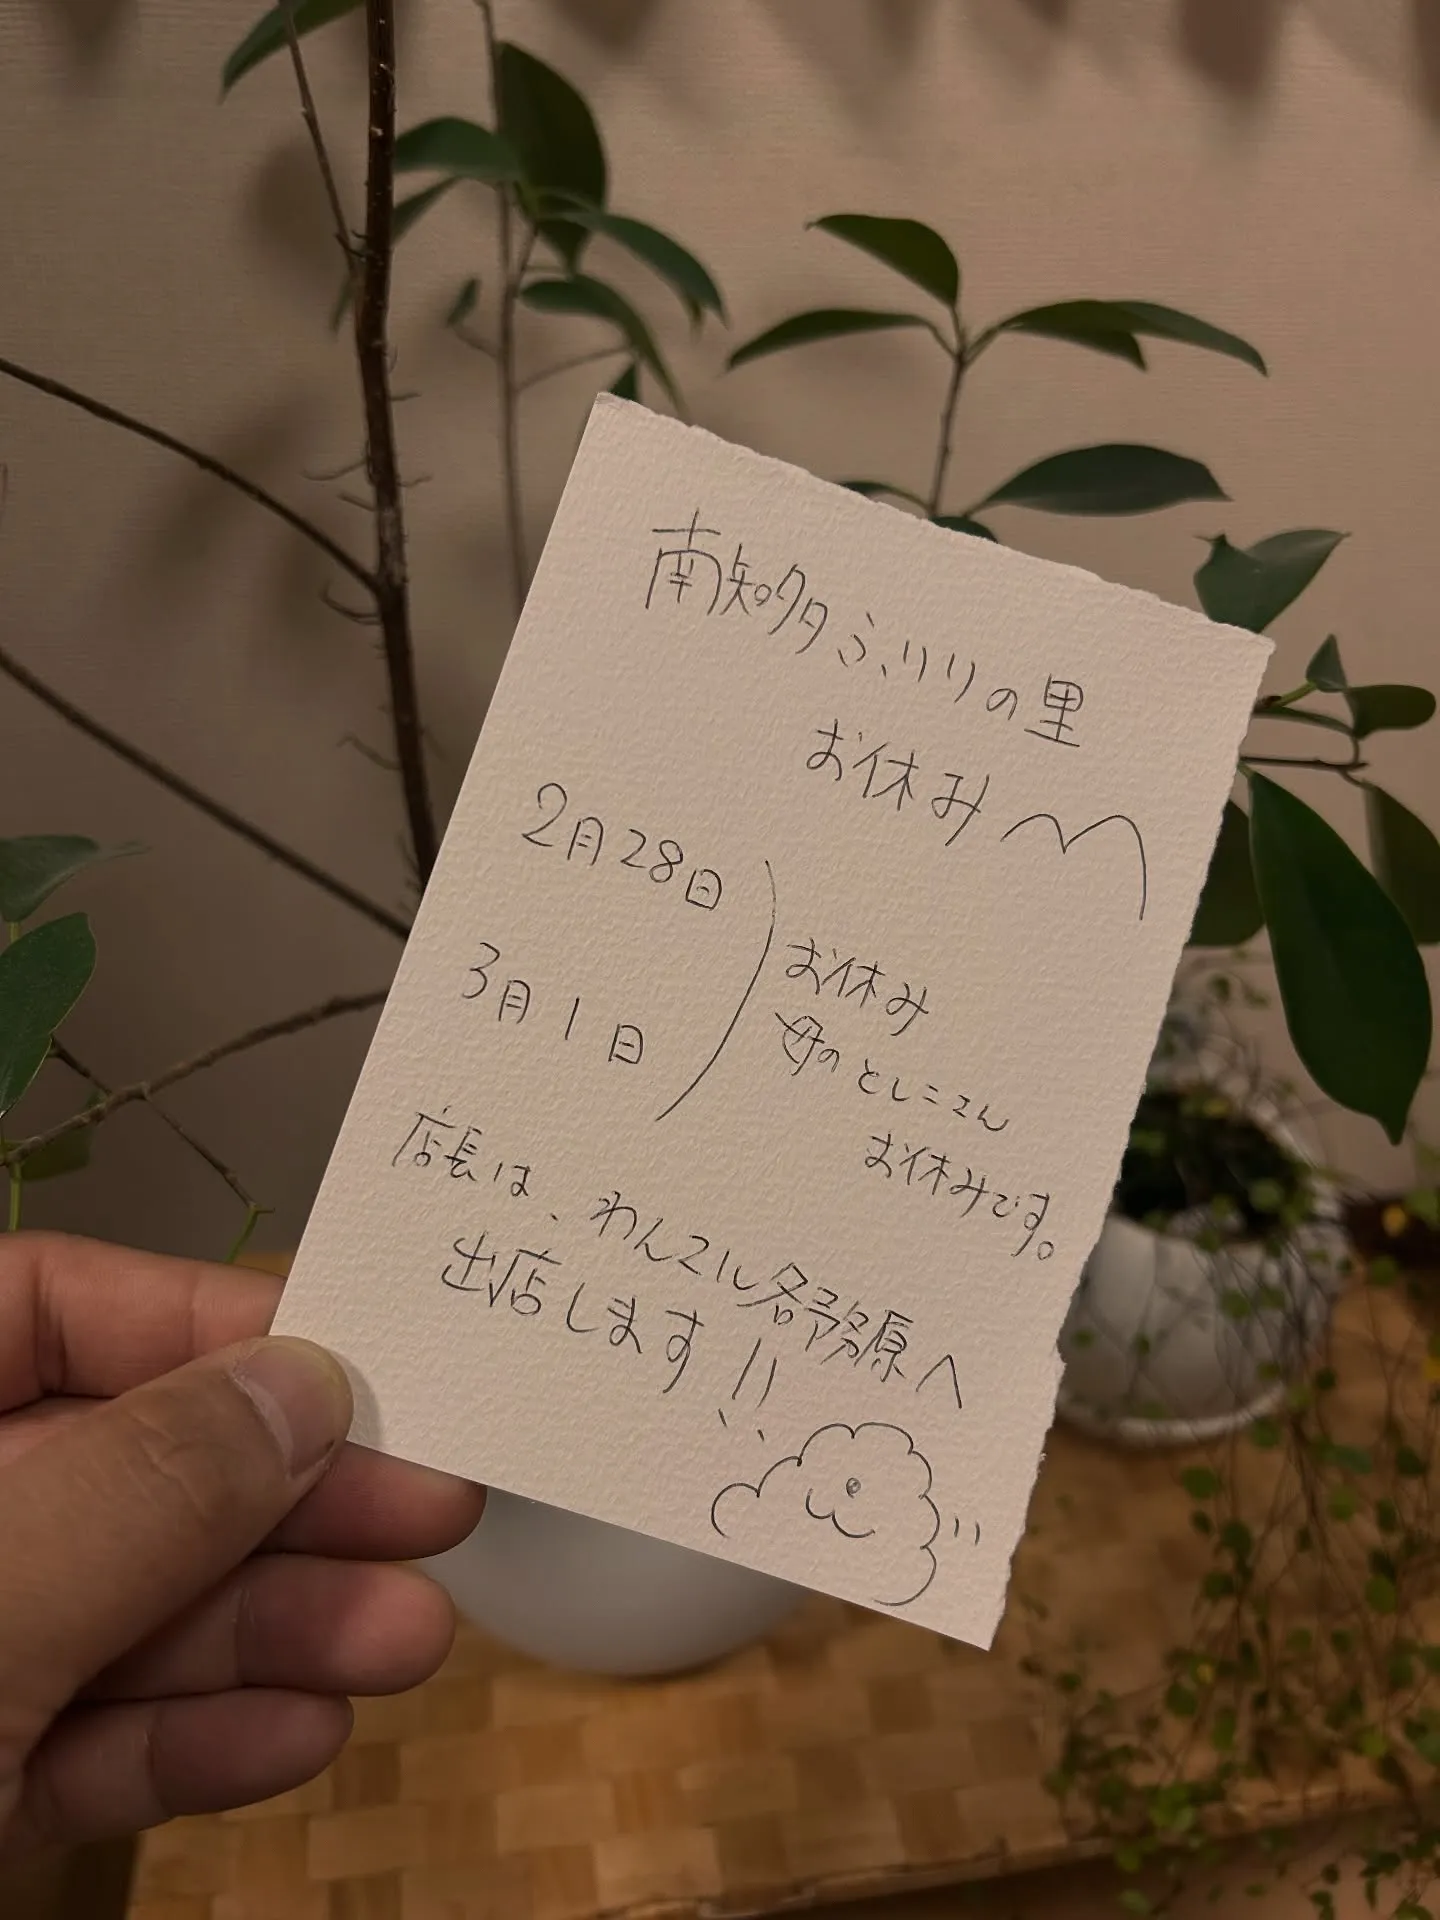 南知多ミリリの里
お休み
2月28日
3月1日
お休み
母のとしこさん
お休みです。
店長は、わんマル各務原へ
出店します!!